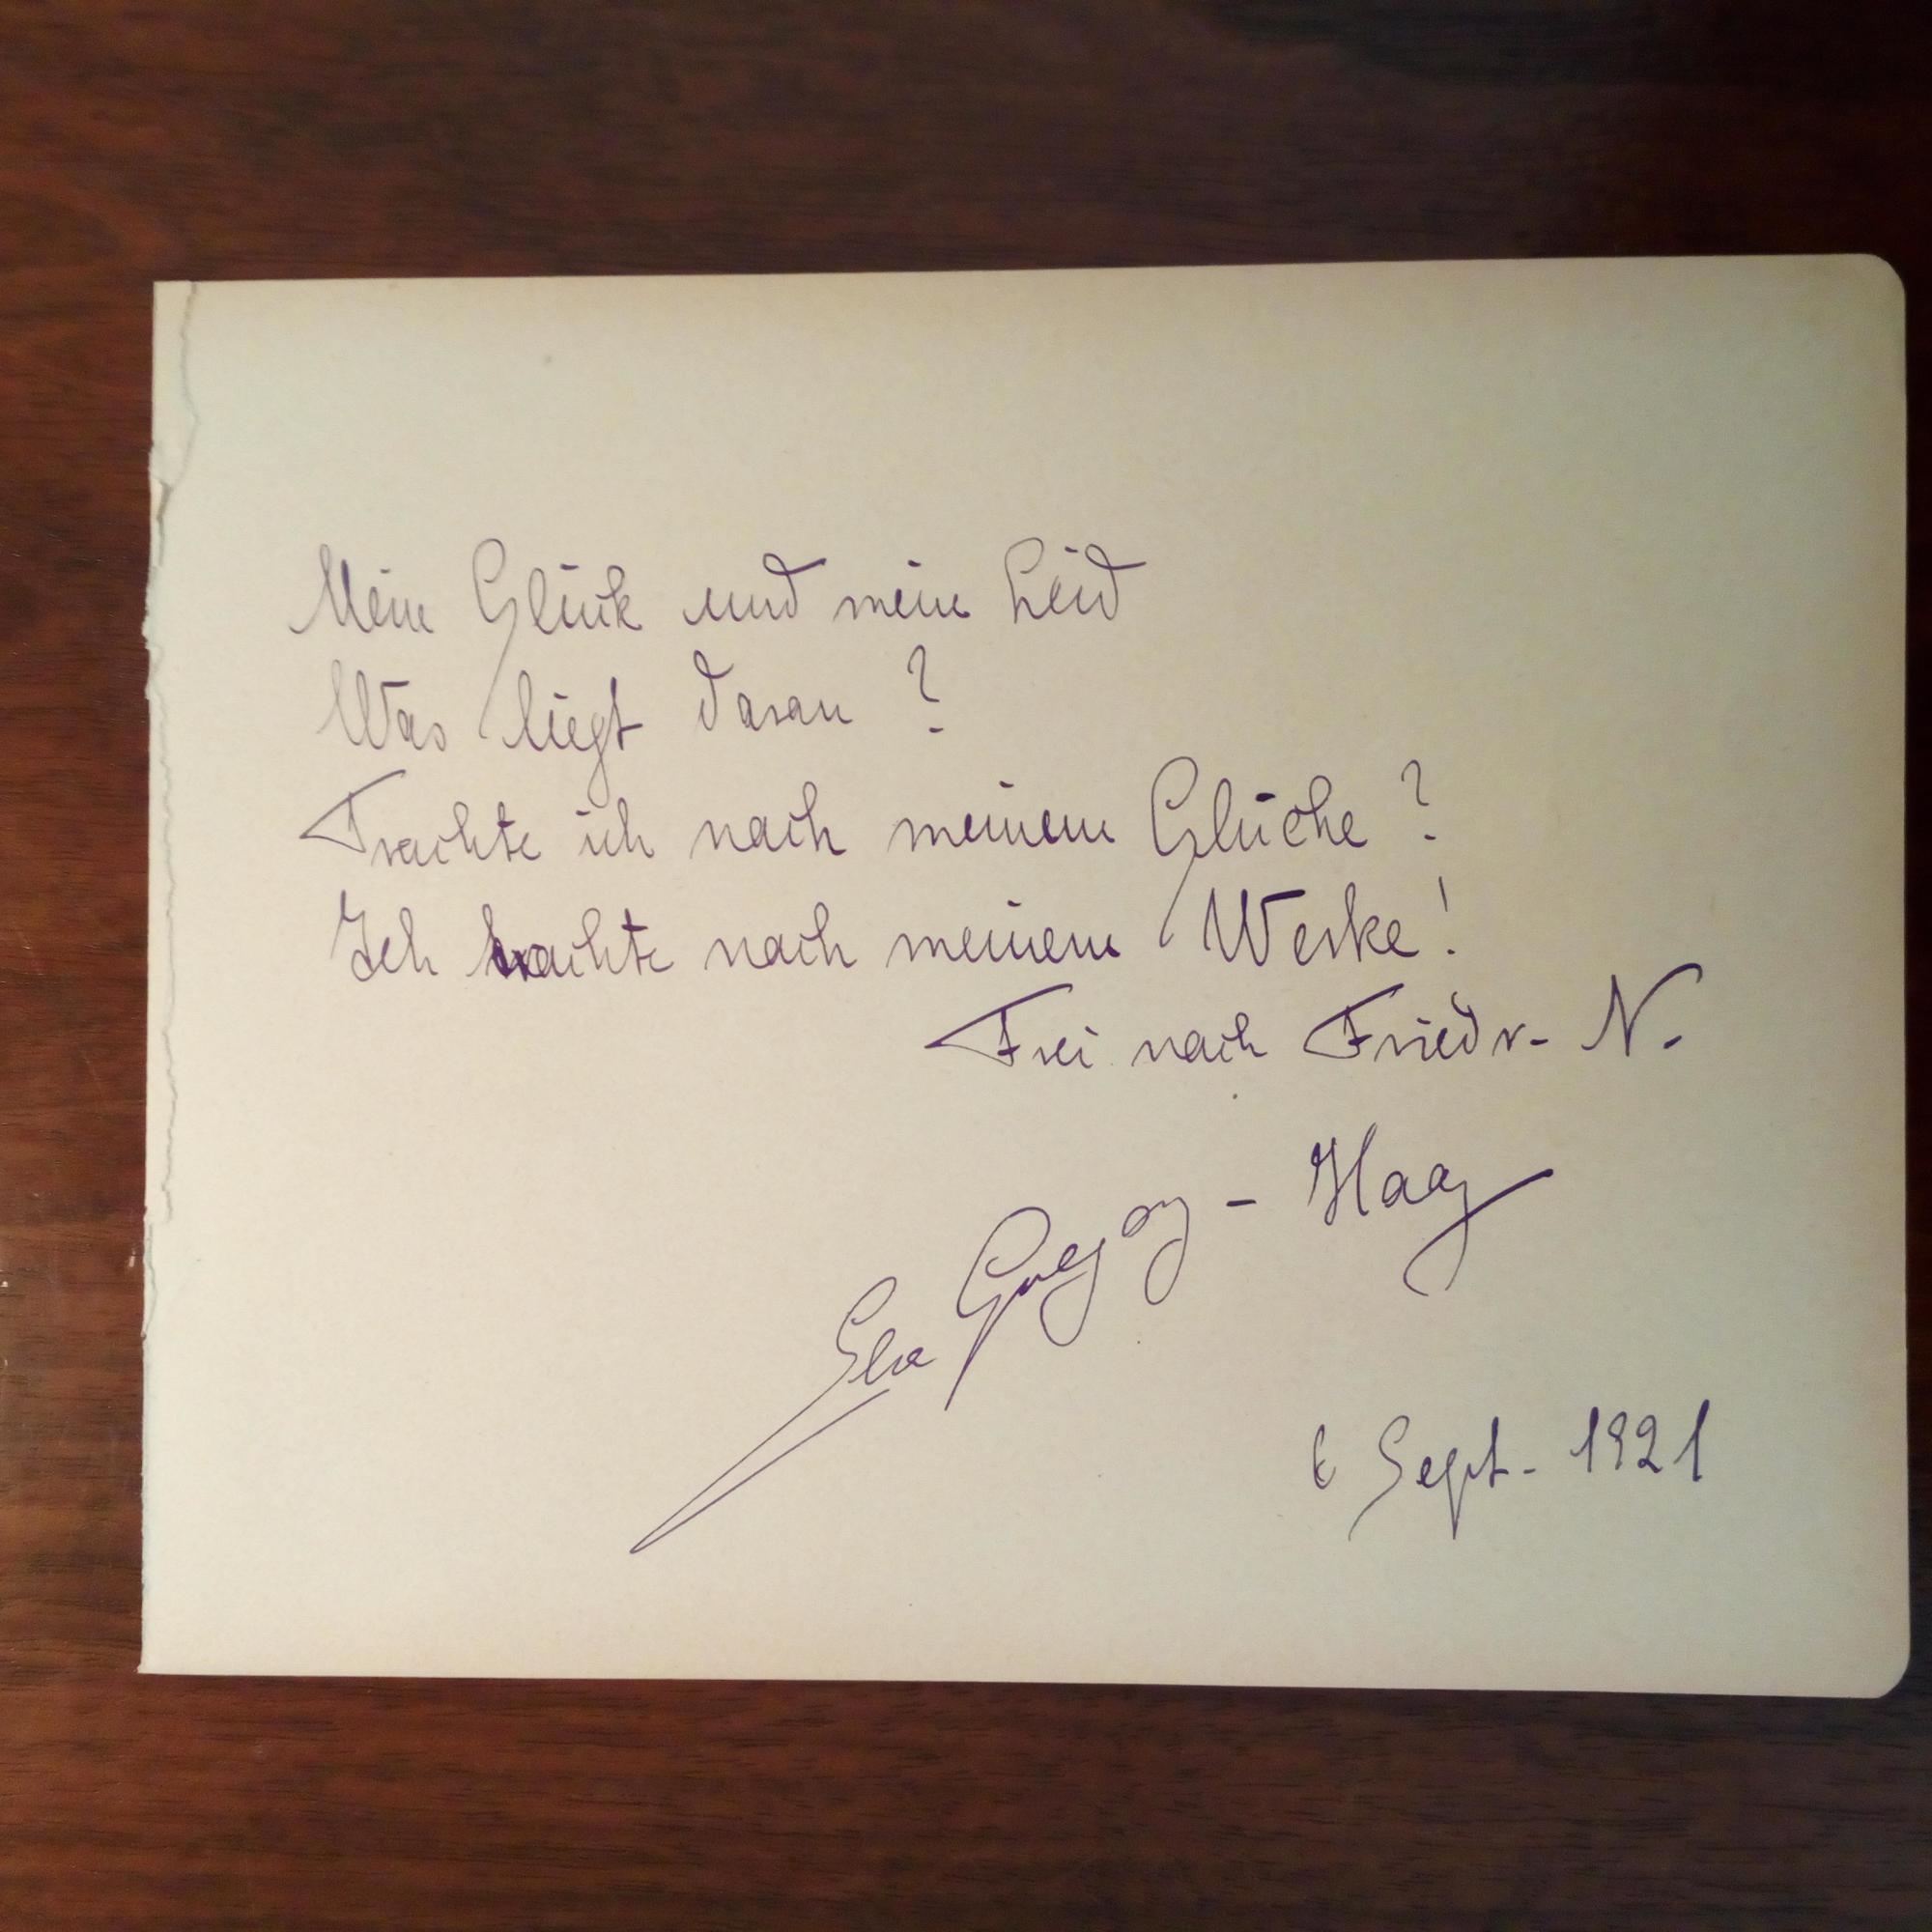 Mein Glück und mein Leid
Was liegt daran?
Trachte ich nach meinem Glücke?
Ich trachte nach meinem Werke!
Frei nach Friedr. N.
Gregory - Haag
6 Sept. 1921